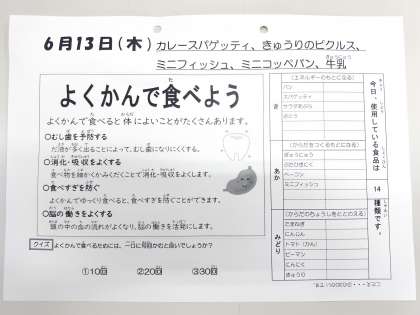 6月13日(木) カレースパゲッティ、きゅうりのピクルス、
ミニフィッシュ、ミニコッペパン、牛乳
よくかんで食べよう
よくかんで食べると体によいことがたくさんあります。
○むし歯を予防する
だ液が多く出ることによって、むし歯になりにくくする。
○消化・吸収をよくする
食べ物を細かくかみくだくことで消化・吸収をよくします。
○食べすぎを防ぐ
よくかんでゆっくり食べると、食べすぎを防ぐことができます。
○脳の働きをよくする
頭の中の血の流れがよくなり、脳の働きを活発にします。
クイズ よくかんで食べるためには、一口に毎回かむと良いでしょうか?
①10回 ②20回 ③30回
今日、使用している食品は 14 種類です。
き
(エネルギーのもとになる)
パン
スパゲッティ
サラダあぶら
さとう
あか
(からだをつくるもとになる)
ぎゅうにゅう
ぶたひきにく
ベーコン
ミニフィッシュ
みどり
(からだのちょうしをととのえる)
たまねぎ
にんじん
トマト(かん)
ピーマン
にんにく
きゅうり